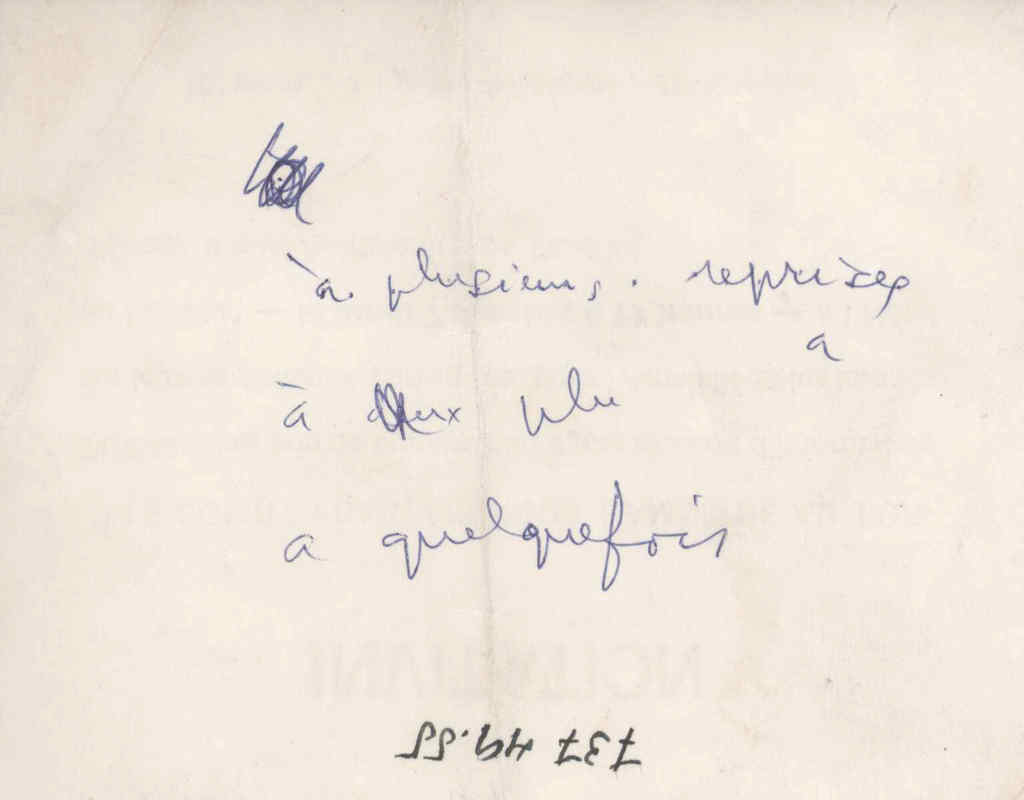 à plusieurs. reprises
a
à deux plu
a quelquefois
737 49.55